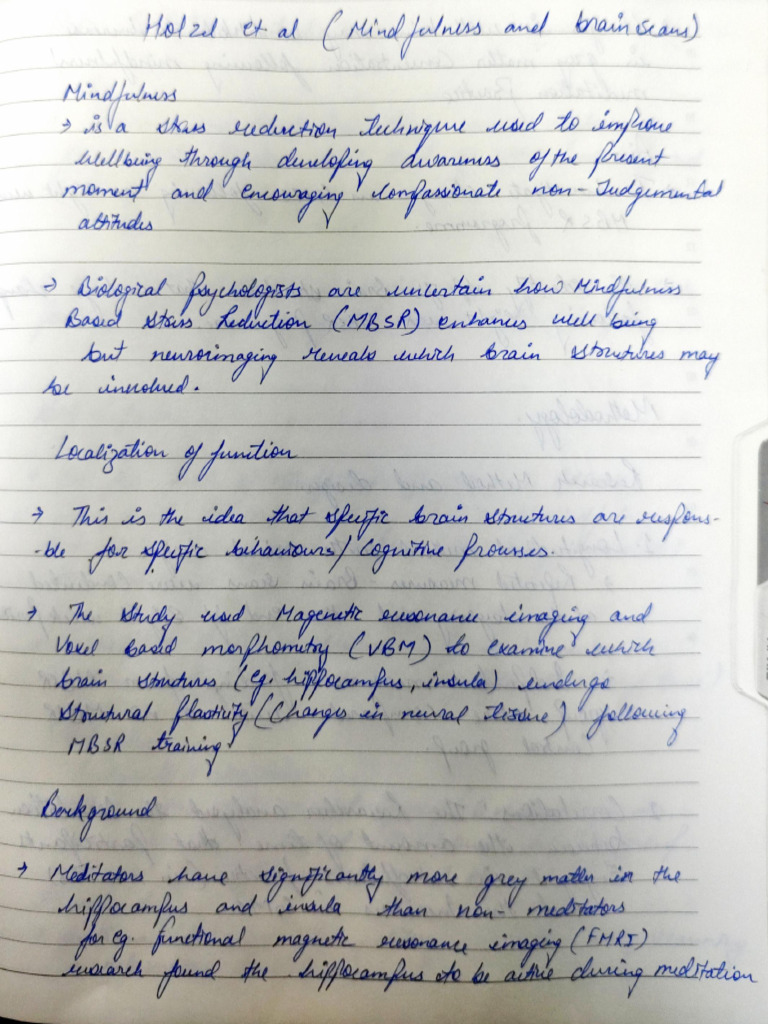 Holzel et al (Mindfulness and brain scans)
Mindfulness
→ is a stress reduction technique used to improve
wellbeing through developing awareness of the present
moment and encouraging compassionate non-Judgemental
attitudes
→ Biological psychologists are uncertain how Mindfulness
Based stress Reduction (MBSR) enhances well being
but neuroimaging reveals which brain structures may
be involved.
Localization of function
→ This is the idea that specific brain structures are respons-
-ble for specific behaviours/ Cognitive processes.
→ The study used Magenetic resonance imaging and
Voxel based morphometry (VBM) to examine which
brain structures (eg. hippocampus, insula) undergo
structural plastivity (Changes in neural tissue) following
MBSR training.
Background
→ Meditators have significantly more grey matter in the
hippocampus and insula than non-meditators
for eg. functional magnetic resonance imaging (FMRI)
research found the hippocampus to be active during meditation